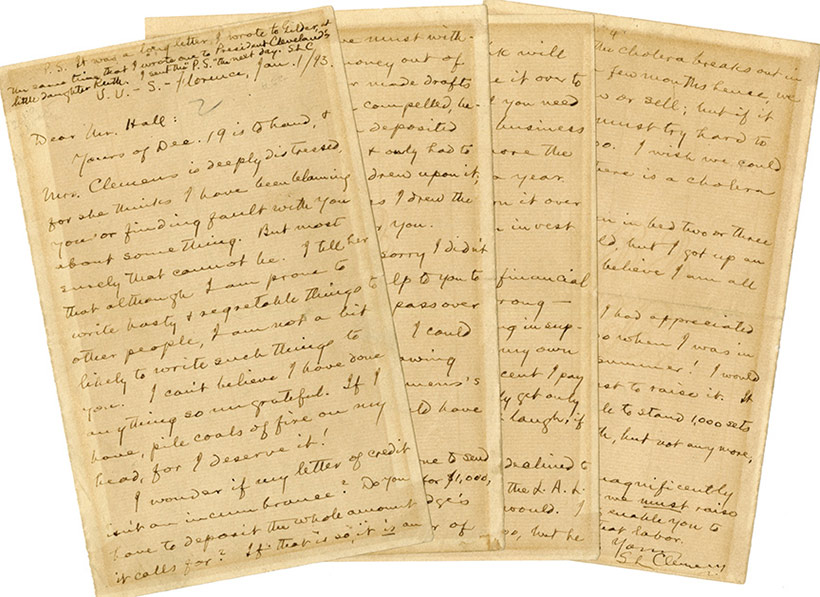 P.S. It was a long letter I wrote to Gilder, &
the same thing that I wrote one to President Cleveland's
little daughter Ruth. I sent the "P.S." the next day. SLC
Florence, Jan. 1/93.
Dear Mr. Hall:
Yours of Dec. 19 is to hand, &
Mrs. Clemens is deeply distressed,
for she thinks I have been blaming
you or finding fault with you
about something. But most
surely that cannot be. I tell her
that although I am prone to
write hasty & regretable things to
other people, I am not a bit
likely to write such things to
you. I can't believe I have done
anything so ungrateful. If I
have, pile coals of fire on my
head, for I deserve it!
I wonder if my letter of credit
isn't an incumbrance? Do you
have to deposit the whole amount
it calls for? If that is so, it is an
we must with-
money out of
made drafts
compelled, be-
deposited
& only had to
drew upon it;
as I drew the
you.
sorry I didn't
help to you to
pass over
I could
Clemens's
have
me to send
for $1,000,
of
will
it over to
you need
business
more the
a year.
it over
invest
financial
wrong —
in sup-
my own
cent I pay
get only
laugh, if
declined to
the L. A. L.
would. I
but he
the cholera breaks out in
few months hence, we
or sell; but if it
must try hard to
I wish we could
there is a cholera
in bed two or three
but I got up an
believe I am all
I had appreciated
when I was in
summer! I would
to raise it. It
to stand 1,000 sets
but not any more,
magnificently
we must raise
enable you to
that labor.
Yours
S L Clemens